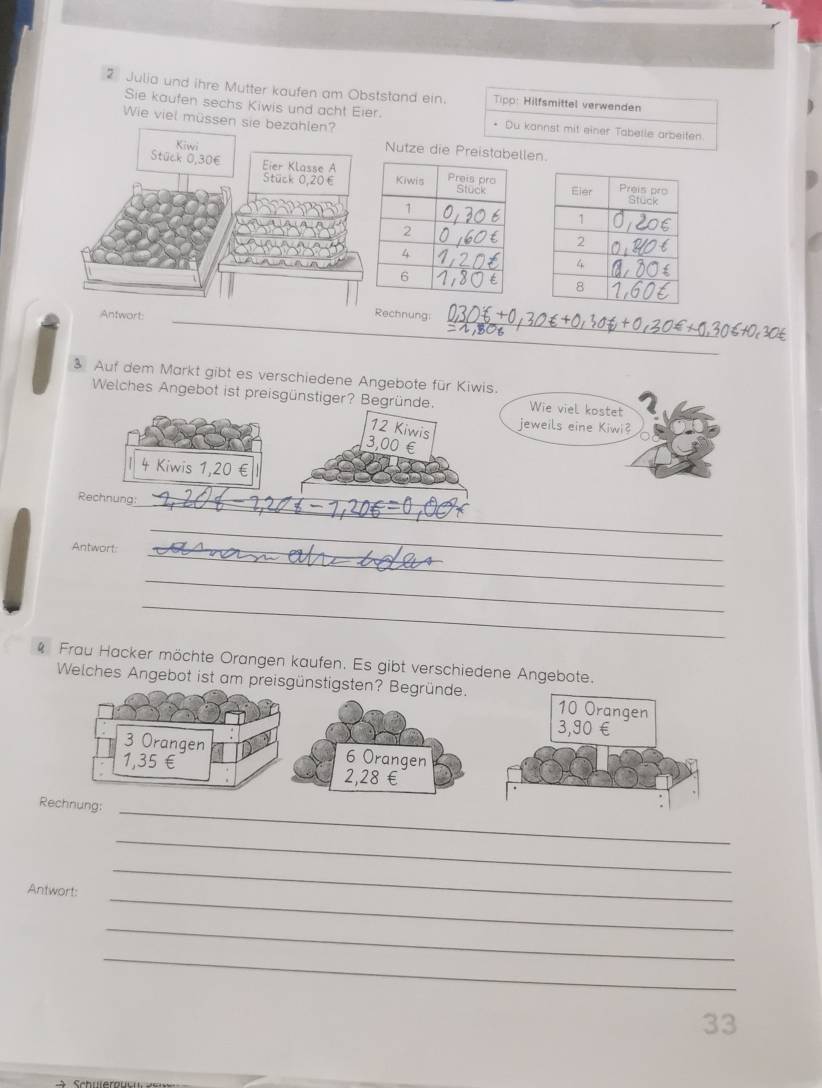 2 Julia und ihre Mutter kaufen am Obststand ein.
Sie kaufen sechs Kiwis und acht Eier.
Wie viel müssen sie bezahlen?
Tipp: Hilfsmittel verwenden
• Du kannst mit einer Tabelle arbeiten.
Kiwi
Stück 0,30€
Eier Klasse A
Stück 0,20 €
Nutze die Preistabellen.
Kiwis Preis pro Stück
1 0,30 €
2 0,60 €
4 1,20 €
6 1,80 €
Eier Preis pro Stück
1 0,20€
2
4
8 1,60€
Antwort:
Rechnung: 0,30€+0,30€+0,30€+0,30€+0,30€+0,30€
=1,80€
3 Auf dem Markt gibt es verschiedene Angebote für Kiwis.
Welches Angebot ist preisgünstiger? Begründe.
Wie viel kostet
jeweils eine Kiwi?
?
4 Kiwis 1,20 €
12 Kiwis
3,00 €
Rechnung: 1,20€-1,20€-1,20€=0,00€
Antwort:
Frau Hacker möchte Orangen kaufen. Es gibt verschiedene Angebote.
Welches Angebot ist am preisgünstigsten? Begründe.
3 Orangen
1,35 €
6 Orangen
2,28 €
10 Orangen
3,90 €
Rechnung:
Antwort:
33
→ Schülerbuch,